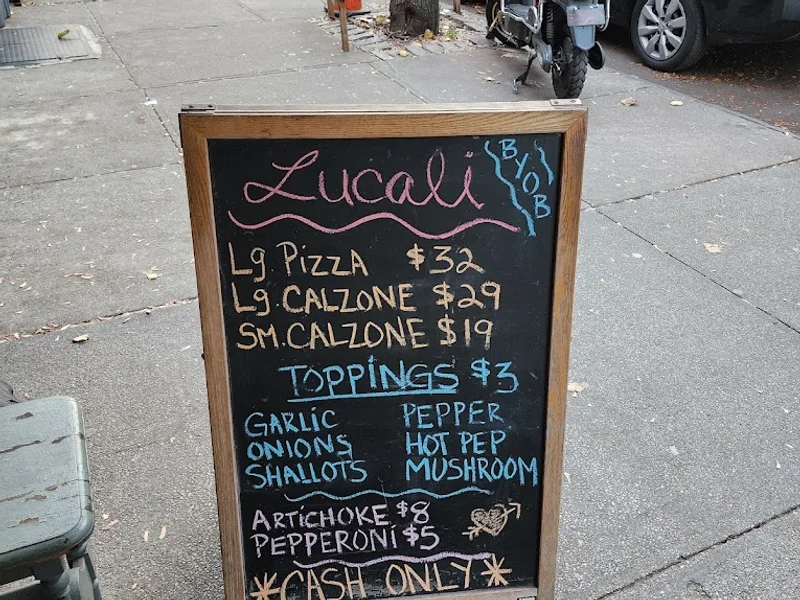 Lucali
BYOB
Lg. PIZZA $32
Lg. CALZONE $29
SM. CALZONE $19
TOPPINGS $3
GARLIC PEPPER
ONIONS HOT PEP
SHALLOTS MUSHROOM
ARTICHOKE $8
PEPPERONI $5
*CASH ONLY*